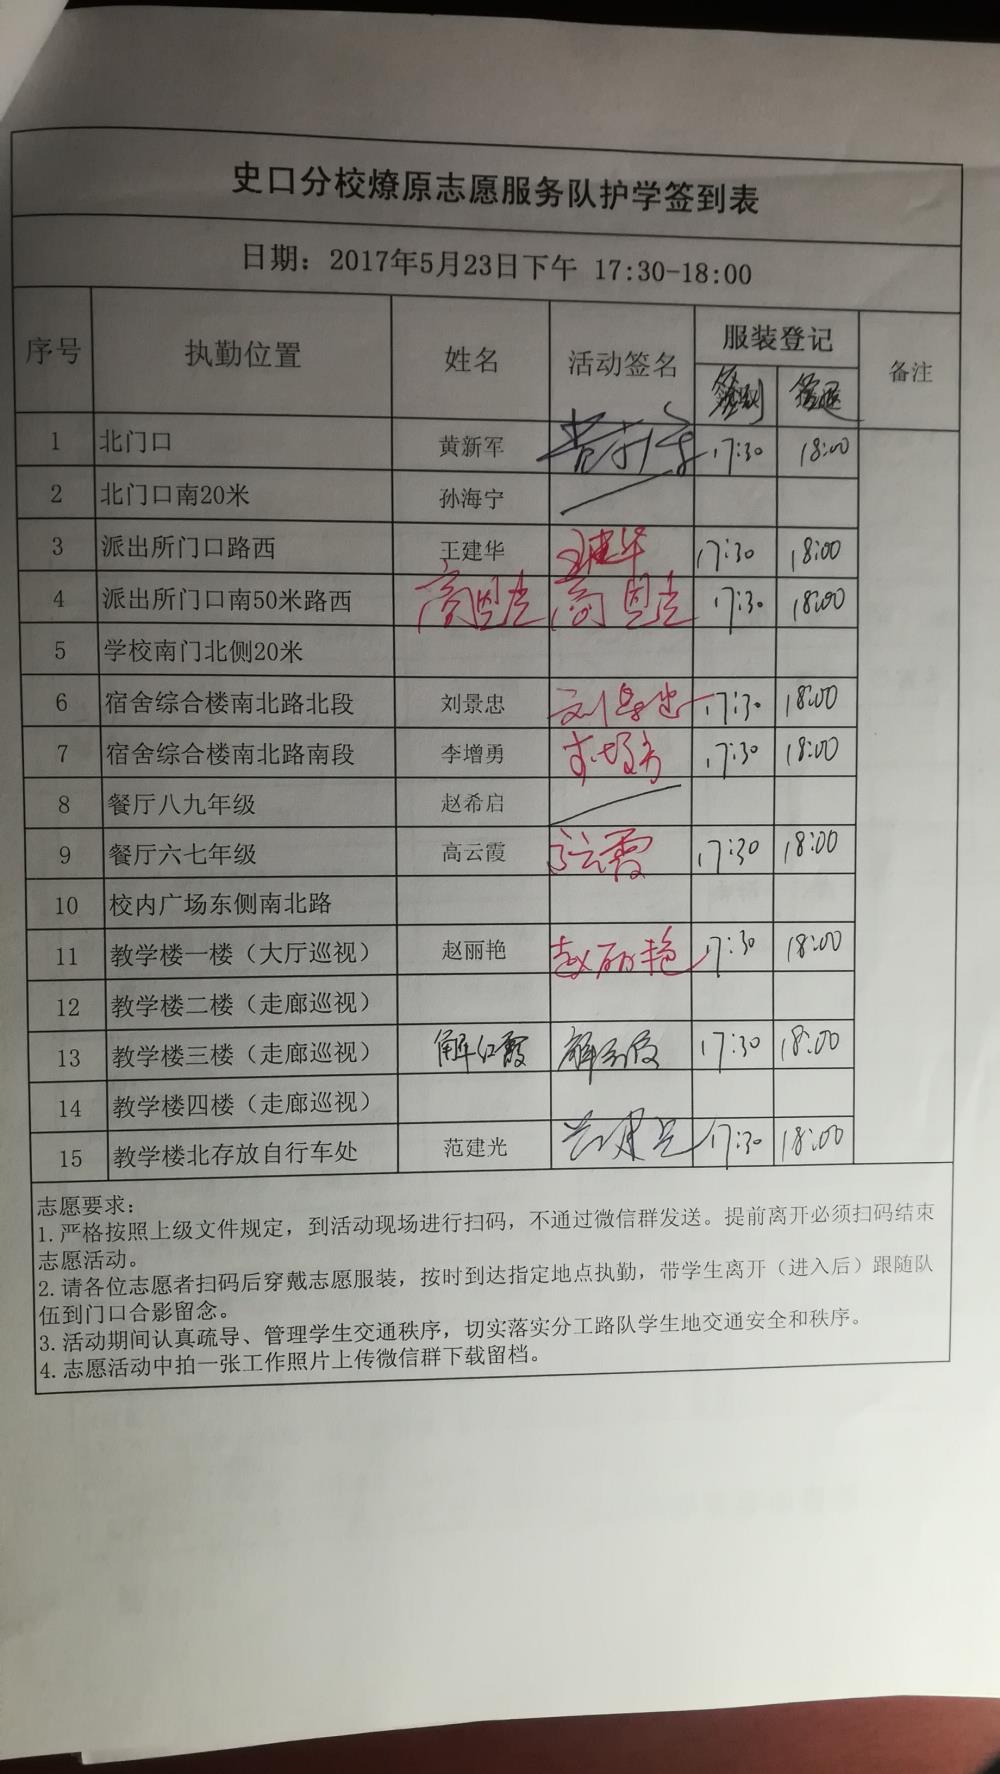 史口分校燎原志愿服务队护学签到表
日期：2017年5月23日下午 17:30-18:00
序号 执勤位置 姓名 活动签名 服装登记 备注
签到 签退
1 北门口 黄新军 17:30 18:00
2 北门口南20米 孙海宁
3 派出所门口路西 王建华 王建华 17:30 18:00
4 派出所门口南50米路西 17:30 18:00
5 学校南门北侧20米
6 宿舍综合楼南北路北段 刘景忠 刘景忠 17:30 18:00
7 宿舍综合楼南北路南段 李增勇 李增勇 17:30 18:00
8 餐厅八九年级 赵希启
9 餐厅六七年级 高云霞 17:30 18:00
10 校内广场东侧南北路
11 教学楼一楼（大厅巡视） 赵丽艳 赵丽艳 17:30 18:00
12 教学楼二楼（走廊巡视）
13 教学楼三楼（走廊巡视） 解红霞 解红霞 17:30 18:00
14 教学楼四楼（走廊巡视）
15 教学楼北存放自行车处 范建光 范建光 17:30 18:00
志愿要求：
1.严格按照上级文件规定，到活动现场进行扫码，不通过微信群发送。提前离开必须扫码结束
志愿活动。
2.请各位志愿者扫码后穿戴志愿服装，按时到达指定地点执勤，带学生离开（进入后）跟随队
伍到门口合影留念。
3.活动期间认真疏导、管理学生交通秩序，切实落实分工路队学生地交通安全和秩序。
4.志愿活动中拍一张工作照片上传微信群下载留档。